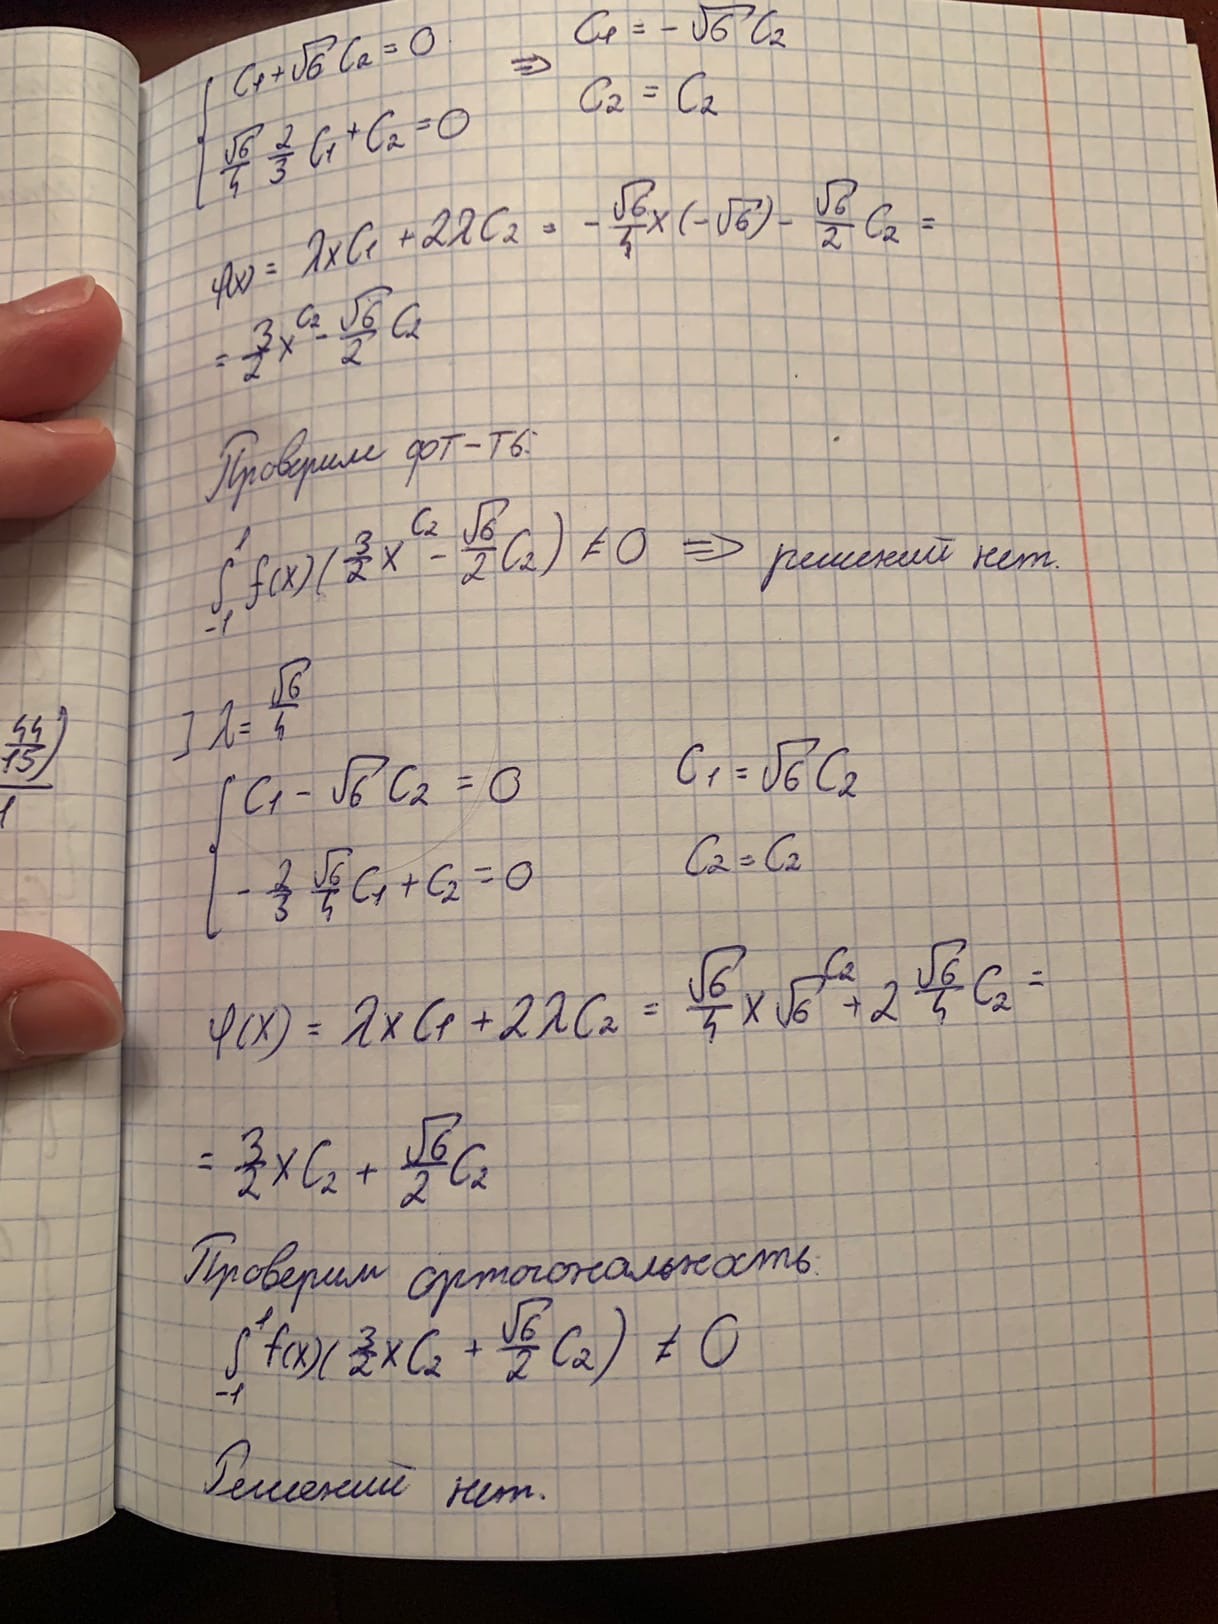 { C₁ + √6 C₂ = 0 ⇒ C₁ = -√6 C₂
√6/4 2/3 C₁ + C₂ = 0 C₂ = C₂
φ(x) = λxC₁ + 2λC₂ = -√6/4 x(-√6) - √6/2 C₂ =
= 3/2 x C₂ - √6/2 C₂
Проверим орт-ть:
∫₋₁¹ f(x)(3/2 x C₂ - √6/2 C₂) ≠ 0 ⇒ решений нет.
] λ = √6/4
{ C₁ - √6 C₂ = 0 C₁ = √6 C₂
-2/3 √6/4 C₁ + C₂ = 0 C₂ = C₂
φ(x) = λxC₁ + 2λC₂ = √6/4 x √6 C₂ + 2 √6/4 C₂ =
= 3/2 x C₂ + √6/2 C₂
Проверим ортогональность:
∫₋₁¹ f(x)(3/2 x C₂ + √6/2 C₂) ≠ 0
Решений нет.
44/15)
1